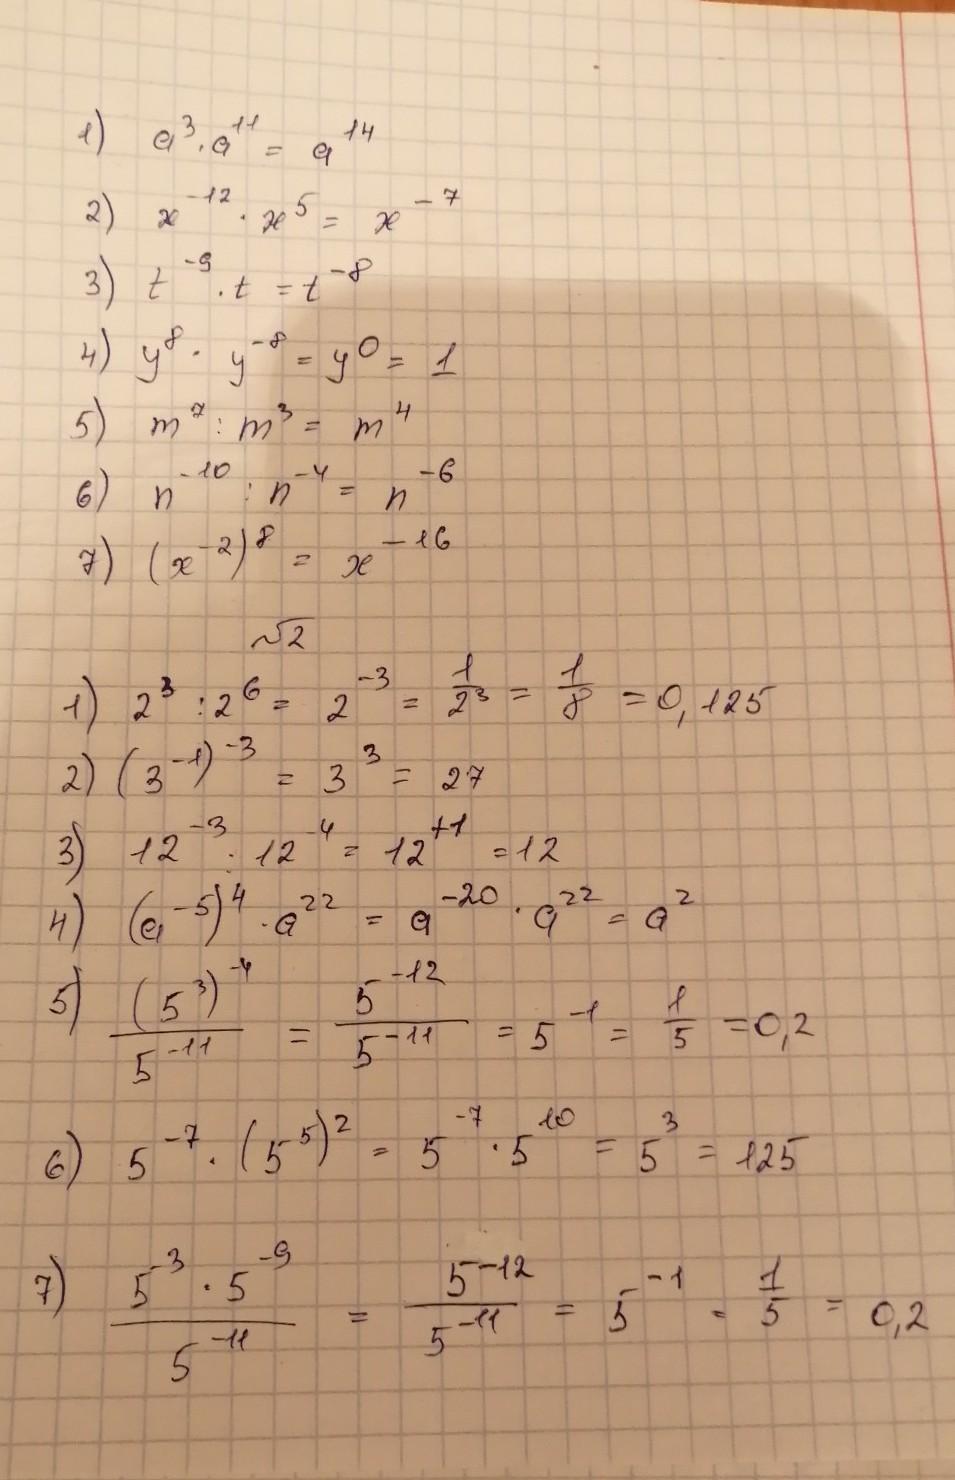 1) a³·a¹¹ = a¹⁴
2) x⁻¹²·x⁵ = x⁻⁷
3) t⁻⁹·t = t⁻⁸
4) y⁸·y⁻⁸ = y⁰ = 1
5) m⁷:m³ = m⁴
6) n⁻¹⁰:n⁻⁴ = n⁻⁶
7) (x⁻²)⁸ = x⁻¹⁶
√2
1) 2³:2⁶ = 2⁻³ = 1/2³ = 1/8 = 0,125
2) (3⁻¹)⁻³ = 3³ = 27
3) 12⁻³:12⁻⁴ = 12⁺¹ = 12
4) (a⁻⁵)⁴·a²² = a⁻²⁰·a²² = a²
5) (5³)⁻⁴/5⁻¹¹ = 5⁻¹²/5⁻¹¹ = 5⁻¹ = 1/5 = 0,2
6) 5⁻⁷·(5⁵)² = 5⁻⁷·5¹⁰ = 5³ = 125
7) 5⁻³·5⁻⁹/5⁻¹¹ = 5⁻¹²/5⁻¹¹ = 5⁻¹ = 1/5 = 0,2